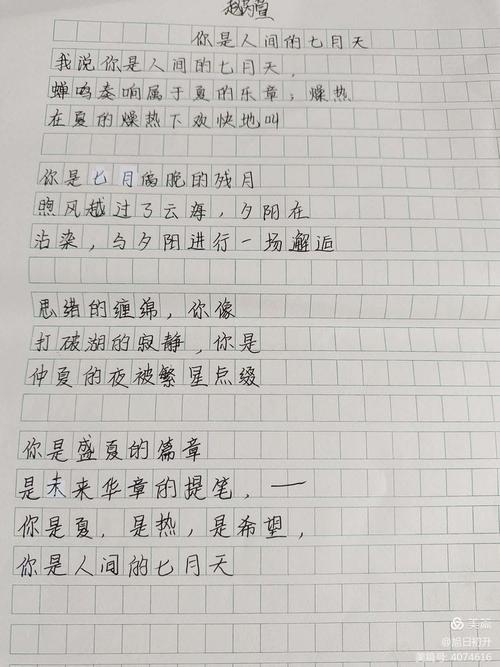 你是人间的七月天
我说你是人间的七月天,
蝉鸣奏响属于夏的乐章;燥热
在夏的燥热下欢快地叫
你是七月傍晚的残月
煦风越过了云海,夕阳在
沾染,与夕阳进行一场邂逅
思绪的缠绵,你像
打破湖的寂静,你是
仲夏的夜被繁星点缀
你是盛夏的篇章
是未来华章的提笔,一
你是夏,是热,是希望,
你是人间的七月天
美篇
@旭日初升
美篇号: 4074616